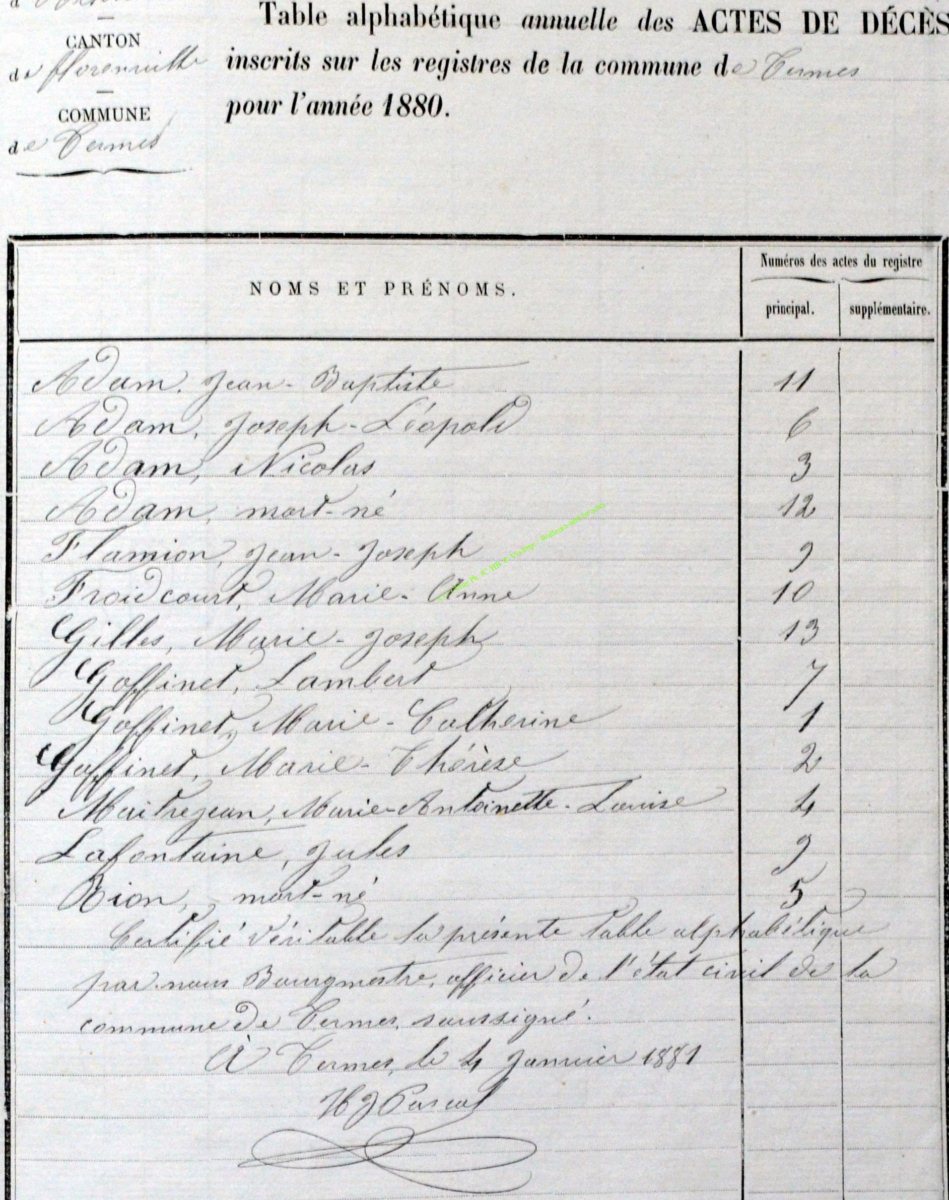 CANTON
de Florenville
COMMUNE
de Termes
Table alphabétique annuelle des ACTES DE DÉCÈS
inscrits sur les registres de la commune de Termes
pour l'année 1880.
NOMS ET PRÉNOMS.
Numéros des actes du registre
principal. supplémentaire.
Adam, Jean-Baptiste 11
Adam, Joseph-Léopold 6
Adam, Nicolas 3
Adam, mort-né 12
Flamion, Jean-Joseph 9
Froidcourt, Marie-Anne 10
Gilles, Marie-Joseph 13
Goffinet, Lambert 7
Goffinet, Marie-Catherine 1
Goffinet, Marie-Thérèse 2
Maitrejean, Marie-Antoinette-Louise 4
Lafontaine, Jules 9
Rion, mort-né 5
Certifié véritable la présente table alphabétique
par nous Bourgmestre, officier de l'état civil de la
commune de Termes, soussigné.
À Termes, le 4 Janvier 1881
Pascal